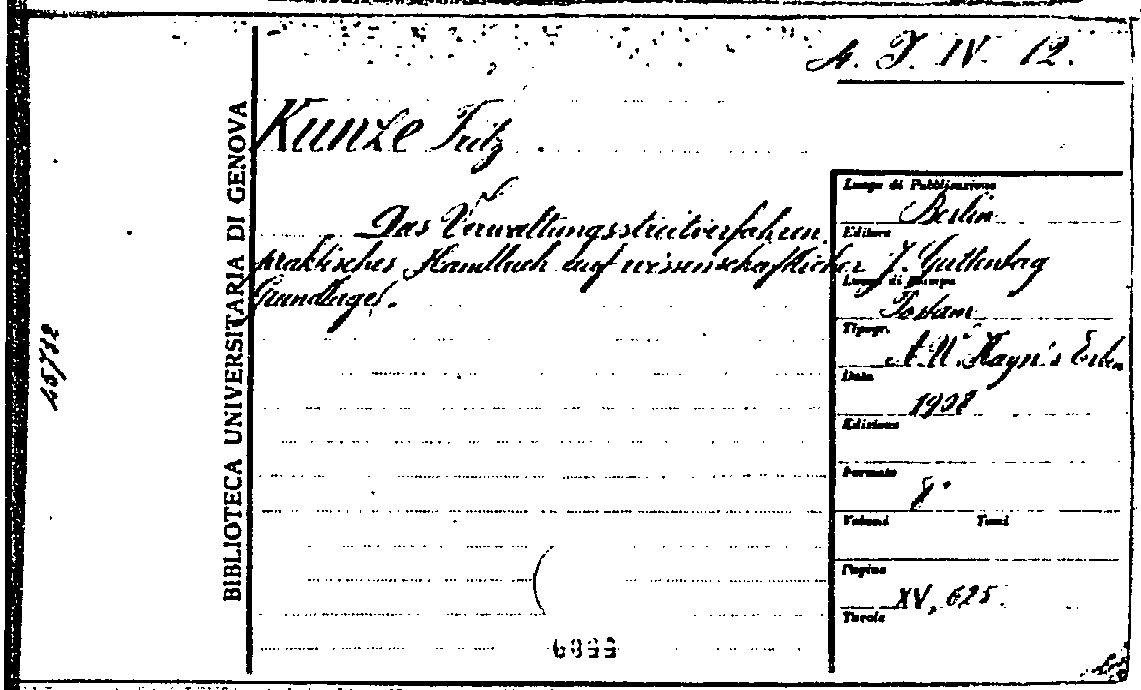 A. J. IV. 12.
Kunze Fritz
Das Verwaltungsstreitverfahren.
praktisches Handbuch auf wissenschaftlicher
Grundlage.
BIBLIOTECA UNIVERSITARIA DI GENOVA
Luogo di Pubblicazione
Berlin
Editore
J. Guttentag
Luogo di stampa
Potsdam
Tipogr.
A. W. Hayn's Erben
Data
1908
Edizione
Formato
8°
Volumi Tomi
Pagine
XV, 625.
Tavole